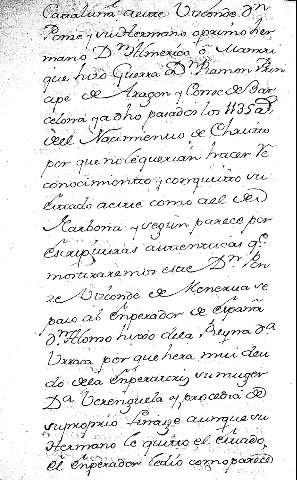 Cataluña a este Vizconde Dn
Ponze y su Hermano o primo her
mano Dn Almerico ó Manrri
que hizo Guerra Dn Ramon Prin
cipe de Aragon y Conde de Bar
celona y a dho pasados los 1135 as
del Nacimiento de Christo
por que no le querian hacer Re
conocimiento y conquisto su
Estado a este como a el de
Narbona y segun parece por
Escripturas autenticas qe
mostraremos este Dn Pon
ze Vizconde de Menerva se
paso al Enperador de España
Dn Alonso hixo de la Reyna Da
Urraca por que hera mui deu
do de la Enperatriz su muger
Da Verenguela y procedia de
su proprio Linage aunque su
Hermano le quito el estado,
el Enperador le dio como parece